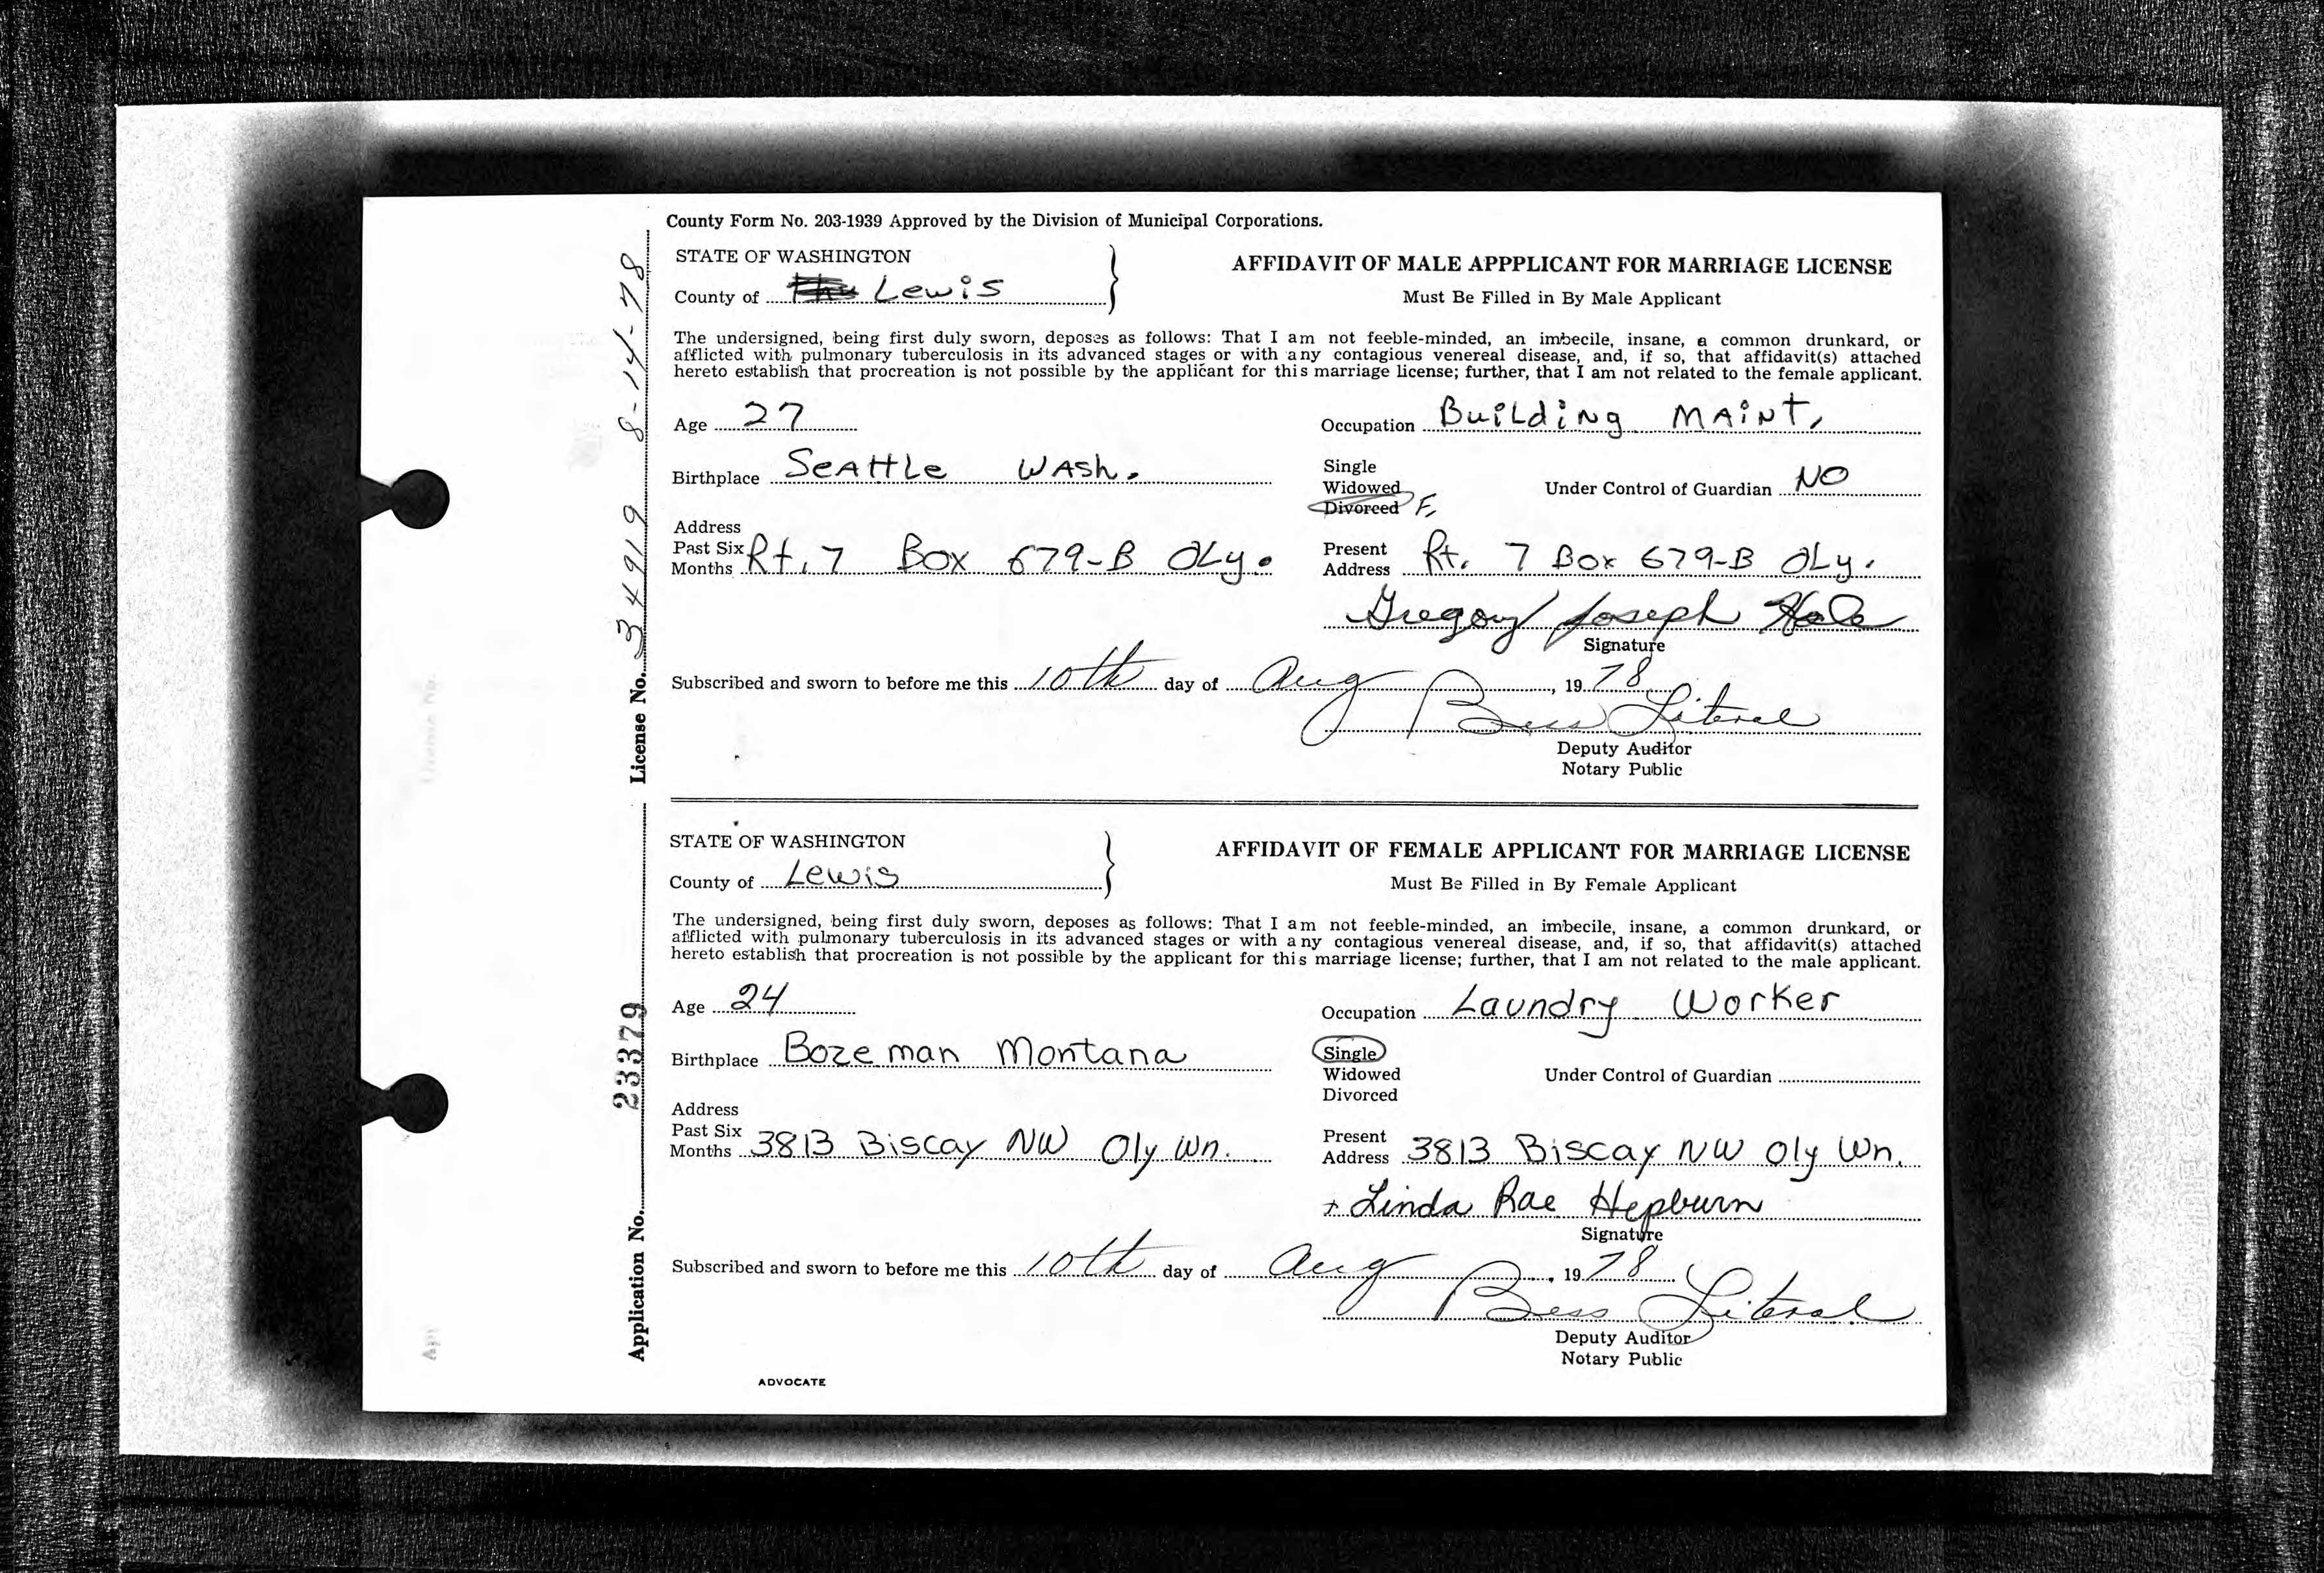 County Form No. 203-1939 Approved by the Division of Municipal Corporations.
STATE OF WASHINGTON
County of Lewis
AFFIDAVIT OF MALE APPPLICANT FOR MARRIAGE LICENSE
Must Be Filled in By Male Applicant
The undersigned, being first duly sworn, deposes as follows: That I am not feeble-minded, an imbecile, insane, a common drunkard, or
afflicted with pulmonary tuberculosis in its advanced stages or with any contagious venereal disease, and, if so, that affidavit(s) attached
hereto establish that procreation is not possible by the applicant for this marriage license; further, that I am not related to the female applicant.
Age 27
Occupation Building MAiNt.
Birthplace SeAttLe WASh.
Single
Widowed
Divorced F,
Under Control of Guardian NO
Address
Past Six
Months Rt. 7 Box 679-B OLy.
Present
Address Rt. 7 Box 679-B OLy.
Gregory Joseph
Signature
Subscribed and sworn to before me this 10th day of Aug, 1978
Bess Literal
Deputy Auditor
Notary Public
License No. 34919 8-14-78
STATE OF WASHINGTON
County of Lewis
AFFIDAVIT OF FEMALE APPLICANT FOR MARRIAGE LICENSE
Must Be Filled in By Female Applicant
The undersigned, being first duly sworn, deposes as follows: That I am not feeble-minded, an imbecile, insane, a common drunkard, or
afflicted with pulmonary tuberculosis in its advanced stages or with any contagious venereal disease, and, if so, that affidavit(s) attached
hereto establish that procreation is not possible by the applicant for this marriage license; further, that I am not related to the male applicant.
Age 24
Occupation Laundry Worker
Birthplace Bozeman Montana
Single
Widowed
Divorced
Under Control of Guardian
Address
Past Six
Months 3813 Biscay NW Oly Wn.
Present
Address 3813 Biscay NW Oly Wn.
+ Linda Rae Hepburn
Signature
Subscribed and sworn to before me this 10th day of Aug, 1978
Bess Literal
Deputy Auditor
Notary Public
Application No. 23379
ADVOCATE